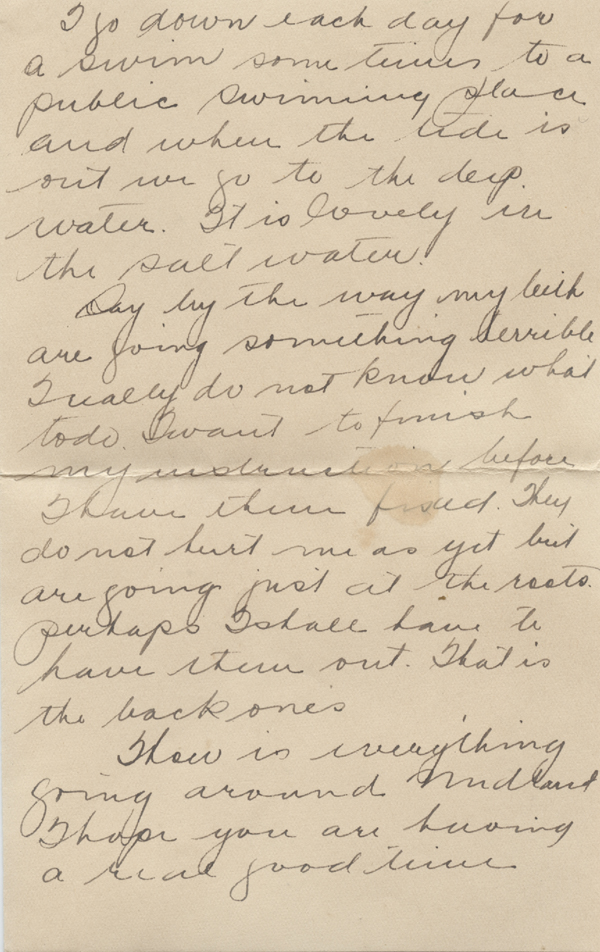 I go down each day for
a swim some times to a
public swimming place
and when the tide is
out we go to the deep
water. It is lovely in
the salt water.
Say by the way my teeth
are going something terrible
I really do not know what
to do. I want to finish
my instruction before
I have them fixed. They
do not hurt me as yet but
are going just at the roots.
perhaps I shall have to
have them out. That is
the back ones
How is everything
going around Midland
I hope you are having
a real good time